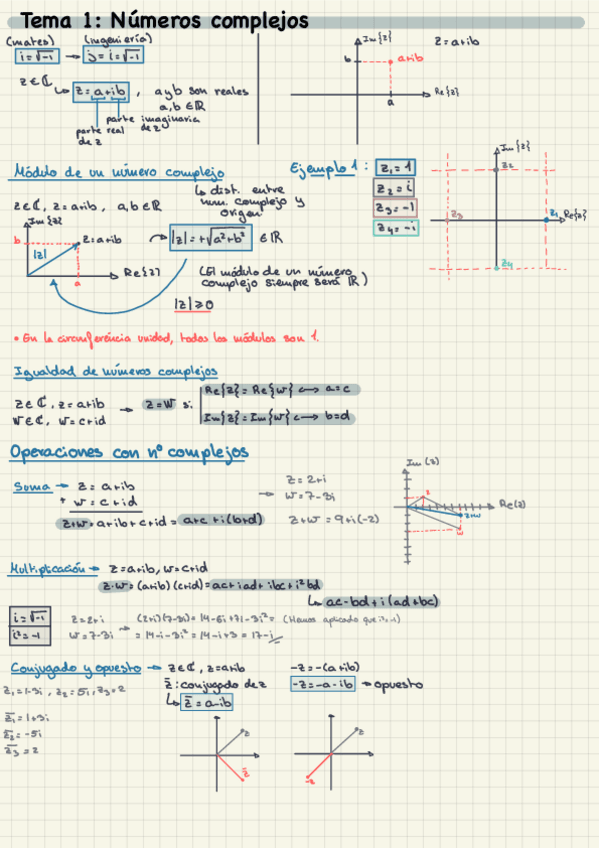 Tema 1: Números complejos
(mates) (ingeniería)
i=√-1 → j=i=√-1
z∈ℂ
↳ z=a+ib, a y b son reales
a,b∈ℝ
parte real de z
parte imaginaria de z
Im{z}
b a+ib
a Re{z}
z=a+ib
Módulo de un número complejo
↳ dist. entre num. complejo y origen
z∈ℂ, z=a+ib, a,b∈ℝ
Im{z}
b z=a+ib
|z|
a Re{z}
|z|=+√a²+b² ∈ℝ
(El módulo de un número complejo siempre será ℝ)
|z|≥0
Ejemplo 1:
z₁=1
z₂=i
z₃=-1
z₄=-i
Im{z}
z₂
z₃ z₁ Re{z}
z₄
• En la circunferencia unidad, todos los módulos son 1.
Igualdad de números complejos
z∈ℂ, z=a+ib
w∈ℂ, w=c+id
→ z=w si
Re{z}=Re{w} ↔ a=c
Im{z}=Im{w} ↔ b=d
Operaciones con nº complejos
Suma → z=a+ib
+ w=c+id
z+w=a+ib+c+id=a+c+i(b+d)
→ z=2+i
w=7-3i
z+w=9+i(-2)
Im(z)
z
Re(z)
z+w
w
Multiplicación → z=a+ib, w=c+id
z·w=(a+ib)(c+id)=ac+iad+ibc+i²bd
↳ ac-bd+i(ad+bc)
i=√-1
i²=-1
z=2+i
w=7-3i
→ (2+i)(7-3i)=14-6i+7i-3i²= (Hemos aplicado que i²=-1)
=14-i-3i²=14-i+3=17-i
Conjugado y opuesto → z∈ℂ, z=a+ib
z̄: conjugado de z
↳ z̄=a-ib
-z=-(a+ib)
-z=-a-ib → opuesto
z₁=1-3i, z₂=5i, z₃=2
z̄₁=1+3i
z̄₂=-5i
z̄₃=2
z
z̄
z
-z